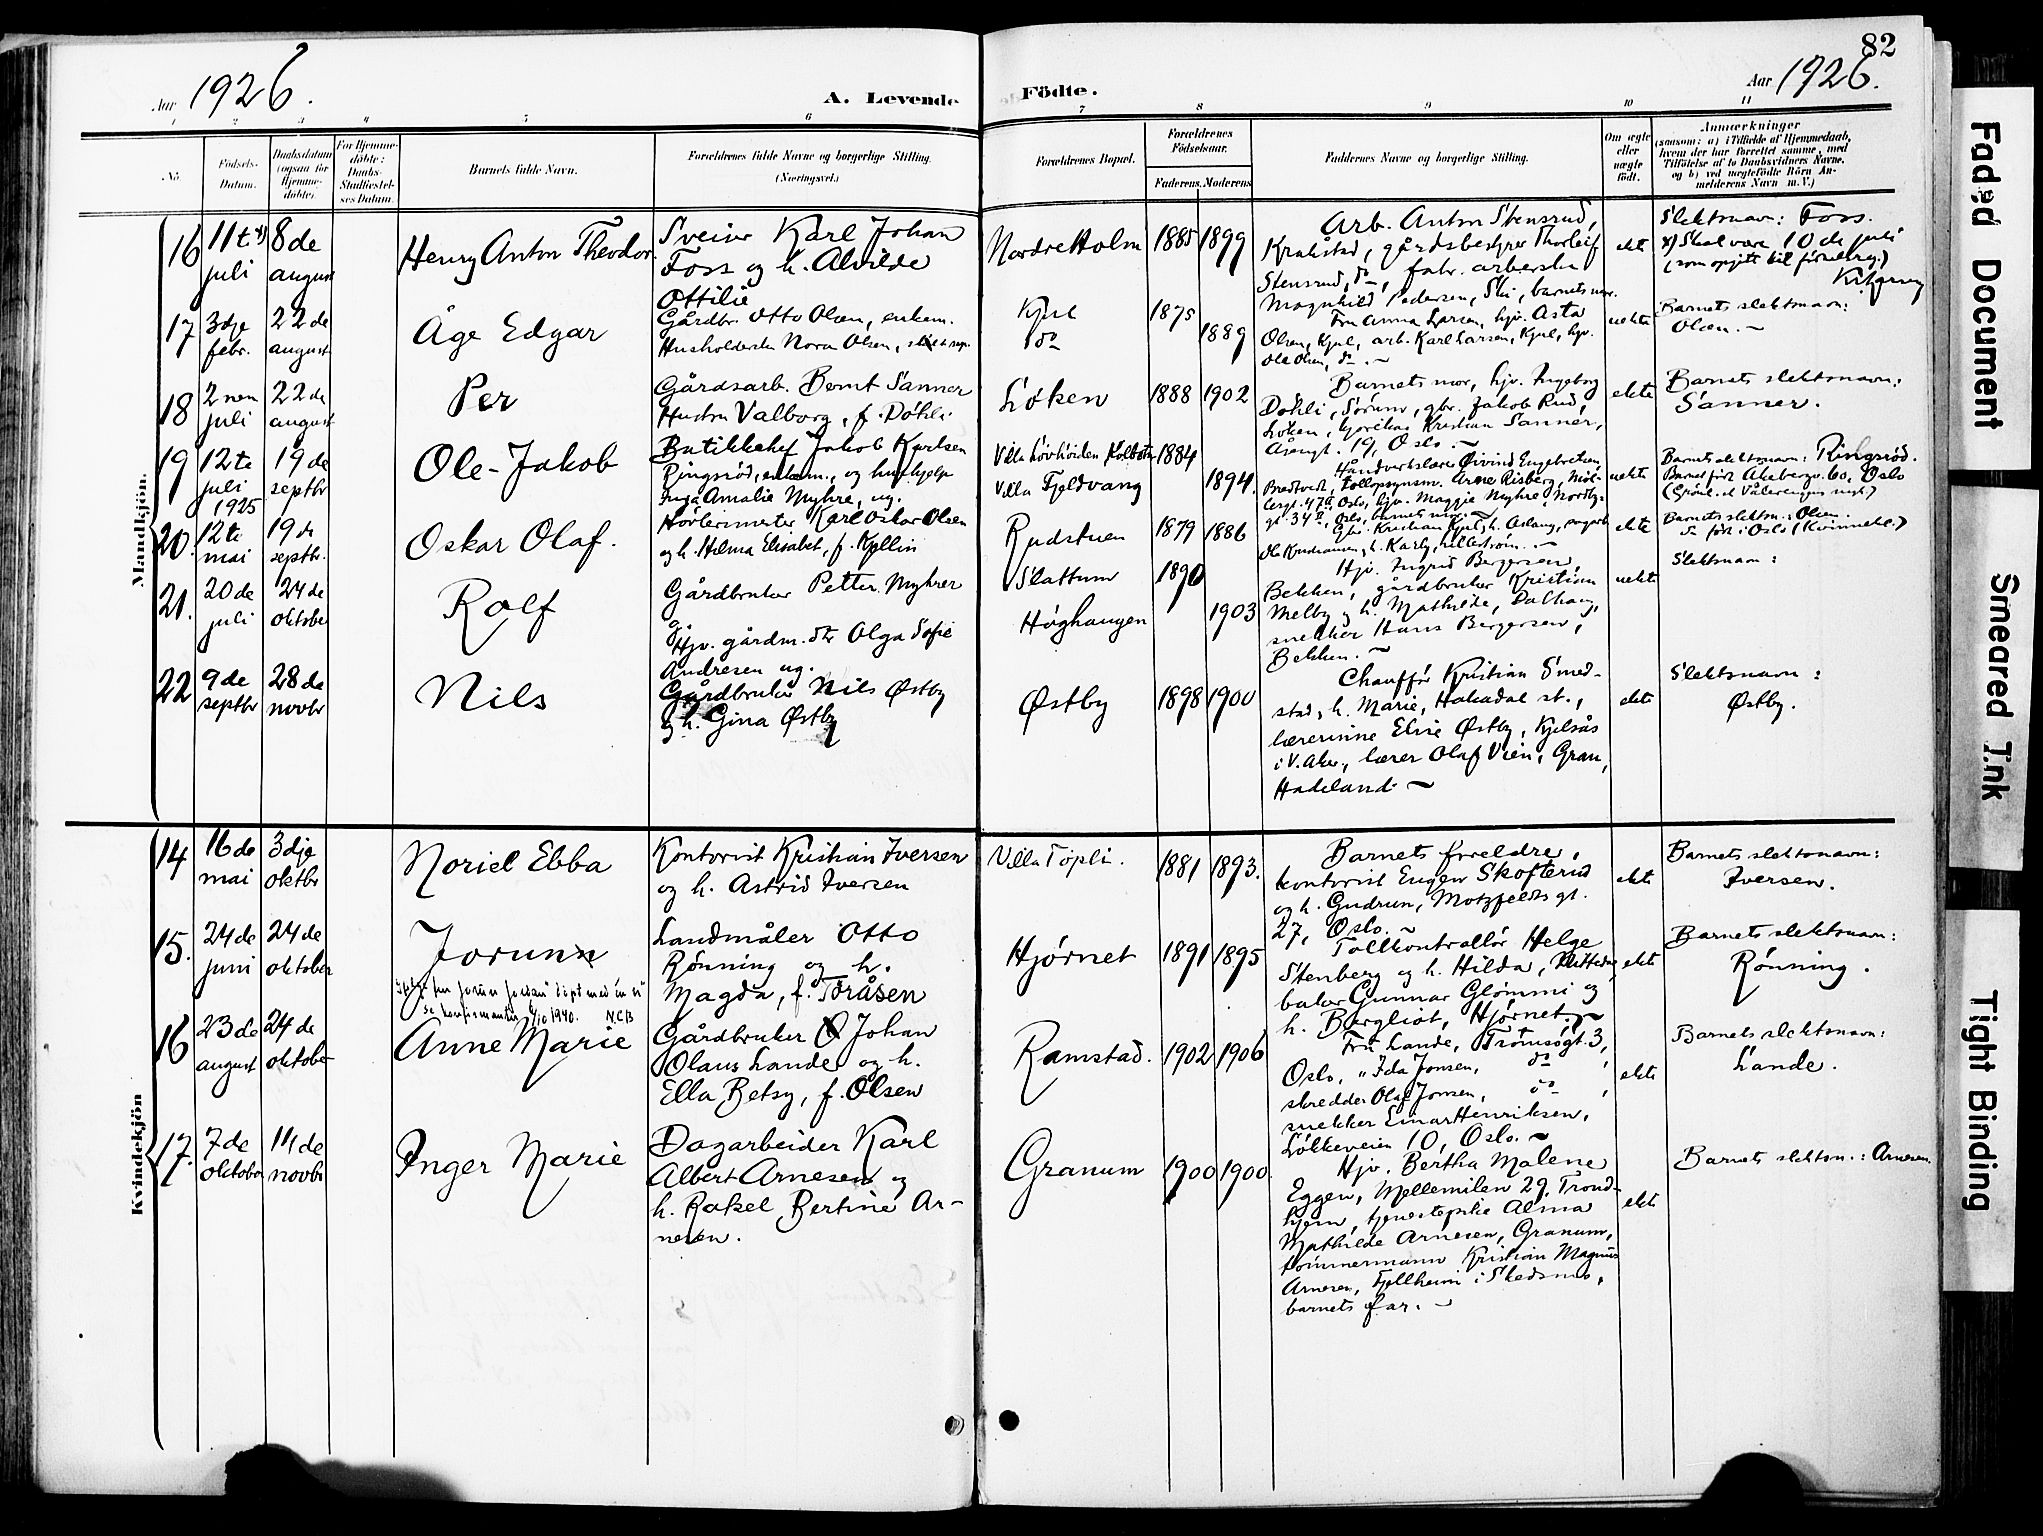 82
Aar 1926.
A. Levende
Födte.
Aar 1926.
1 2 3 4 5 6 7 8 9 10 11
No.
Födsels-
Datum.
Daabsdatum
(ogsaa for
Hjemme-
döbte).
For Hjemme-
döbte:
Daabs-
Stadfæstel-
ses Datum.
Barnets fulde Navn.
Forældrenes fulde Navne og borgerlige Stilling.
(Næringsvei.)
Forældrenes Bopæl.
Forældrenes
Födselsaar.
Faderens. Moderens
Faddernes Navne og borgerlige Stilling.
Om ægte
eller
uægte
födt.
Anmærkninger
(saasom: a) i Tilfælde af Hjemmedaab,
hvem der har forrettet samme, med
Tilföielse af to Daabsvidners Navne,
og b) ved uægtefödte Börn An-
melderens Navn m. V.)
Mandkjön.
16
11te x)
juli
8de
august
Henry Anton Theodor.
Sveiser Karl Johan
Foss og h. Alvilde
Ottilie
Nordre Holm
1885 1899
Arb. Anton Stensrud,
Kråkstad, gårdsbestyrer Thorleif
Stensrud, do, fabr. arberske
Magnhild Pedersen, Ski, barnets mor.
ekte
Slektsnavn: Foss.
x) Skal være 10de juli
17
3dje
febr.
22de
august
Åge Edgar
Gårdbr. Otto Olsen, enkem.
Husholderske Nora Olsen,
Kjul
do
1875
1889
Fru Anna Larsen, hjv. Asta
Olsen, Kjul, arb. Karl Larsen, Kjul, hjv.
Ole Olsen, do. ~
uekte
Barnets slektsnavn:
Olsen. ~
18
2nen
juli
22de
august
Per
Gårdsarb. Bernt Sanner
Hustru Valborg, f. Döhli
Löken
1888 1902
Barnets mor, hjv. Ingeborg
Döhli, Sörum, gbr. Jakob Rud,
Löken, Kristian Sanner,
19, Oslo. ~
ekte
Barnets slektsnavn:
Sanner.
19
12te
juli
1925
19de
septbr
Ole-Jakob
Butikkchef Jakob Karlsen
Ringsröd, enkem., og hushjelp
Inga Amalie Myhre, ug.
Villa Lövhöiden Kolbotn
Villa Fjeldvang
1884
1894.
Håndverkslærer Öivind Engebretsen,
Bredtvedt, tollopsynsm. Arne Risberg,
47a, Oslo, hjv. Maggie Myhre, Nordby-
gt. 34, Oslo, barnets mor. ~
uekte
Barnets slektsnavn: Ringsröd.
Barnet född Akebergv. 60, Oslo
20.
12te
mai
19de
septbr.
Oskar Olaf.
Hövlerimester Karl Oskar Olsen
og h. Hilma Elisabet, f. Kjellin
Rudstuen
1879 1886
Gbr. Kristian Kjul, h. Aslaug,
Ole Kristiansen, h. Karly, Lilleström. ~
ekte
Barnets slektsn.: Olsen.
do född i Oslo (Kvinnekl.)
21.
20de
juli
24de
oktober
Rolf
Gårdbruker Petter Myhrer
og
Hjv. gårdm. dtr Olga Sofie
Andresen ug.
Slattum
Høghaugen
1890
1903
Hjv. Ingrid Bergersen,
Bekken, gårdbruker Kristian
Melby og h. Mathilde, Dalhaug,
snekker Hans Bergersen,
Bekken. ~
uekte
Slektsnavn:
22
9de
septbr
28de
novbr
Nils
Gårdbruker Nils Østby
og h. Gina Østby
Østby
1898 1900
Chauffør Kristian Smed-
stad, h. Marie, Hakadal st.,
lærerinne Elvie Østby, Kjelsås
i V. Aker, lærer Olaf Vien, Gran,
Hadeland. ~
ekte
Slektsnavn:
Østby.
Kvindekjön
14
16de
mai
3dje
oktbr
Noriel Ebba
Kontorist Kristian Iversen
og h. Astrid Iversen
Villa Töpli.
1881 1893.
Barnets foreldre,
kontorist Eugen Skofterud
og h. Gudrun, Motzfeldts gt.
27, Oslo. ~
ekte
Barnets slektsnavn:
Iversen.
15.
24de
juni
24de
oktober
Jorunn
se konfirmantliste 1940. N.C.B
Landmåler Otto
Rönning og h.
Magda, f. Toråsen
Hjörnet
1891 1895
Tollkontrollör Helge
Stenberg og h. Hilda,
Gunnar Glömmi og
h. Bergliot, Hjörnet. ~
ekte
Barnets slektsnavn:
Rønning.
16
23de
august
24de
oktober
Anne Marie
Gårdbruker Johan
Olaus Lande og h.
Ella Betsy, f. Olsen
Ramstad.
1902 1906
Fru Lande, Tromsøgt. 3,
Oslo, " Ida Jonsen, do,
skredder Olaf Jonsen, do,
snekker Einar Henriksen,
Lökkeveien 10, Oslo. ~
ekte
Barnets slektsnavn:
Lande.
17.
7de
oktober
14de
novbr
Inger Marie
Dagarbeider Karl
Albert Arnesen og
h. Rakel Bertine Ar-
nesen.
Granum
1900 1900
Hjv. Bertha Malene
Eggen, Mellemilen 29, Trond-
hjem, tjenestepike Alma
Mathilde Arnesen, Granum,
tömmermann Kristian Magnus
Arnesen, Fjellheim i Skedsmo,
barnets far. ~
ekte
Barnets slektsn.: Arnesen.
Faded Document
Smeared Ink
Tight Binding